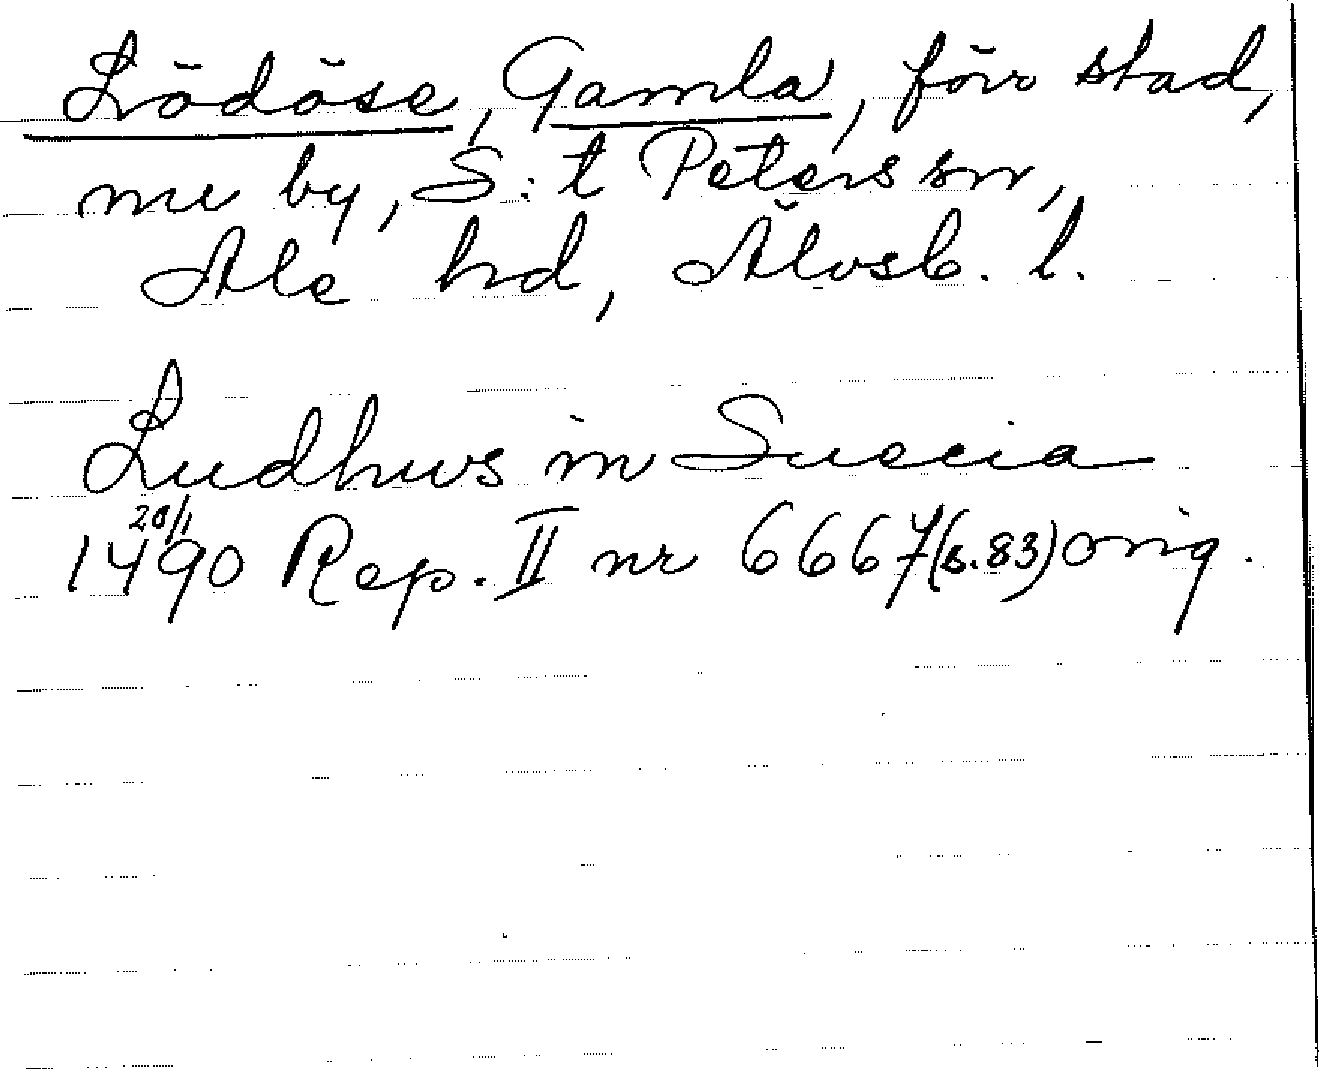 Lödöse, Gamla, förr stad,
nu by, S:t Peters sn,
Ale hd, Älvsb. l.
Ludhws in Suecia
20/1
1490 Rep. II nr 6667 (s. 83) orig.